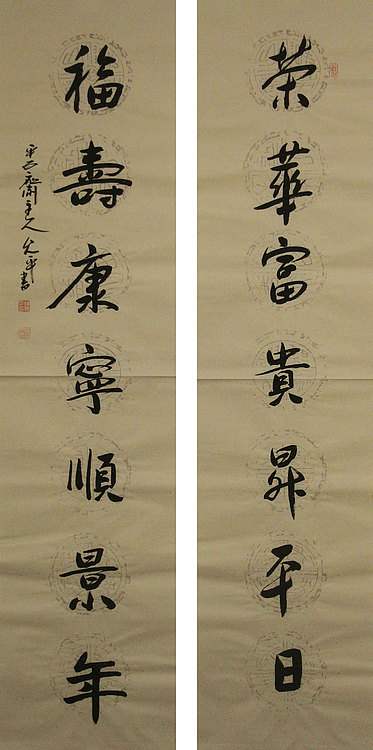 荣華富貴昇平日
福壽康寧順景年
齋主人允平書